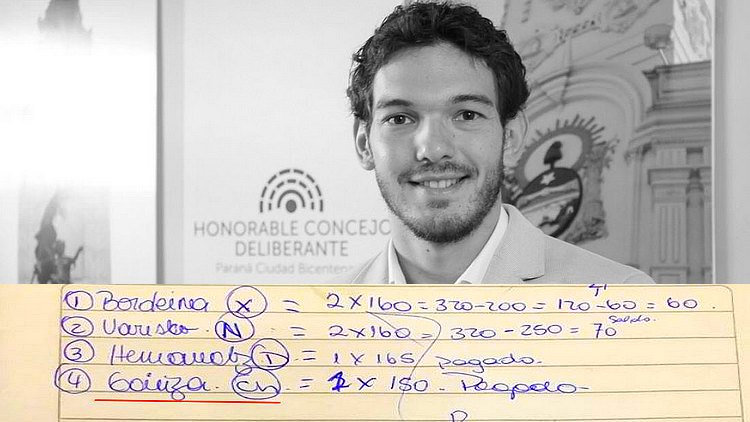 HONORABLE CONCEJO
DELIBERANTE
Paraná Ciudad Bicenten
① Bordeira (X) = 2 x 160 = 320 - 200 = 120 - 60 = 60.
② Varisko. (N) = 2 x 160 = 320 - 250 = 70 Saldo.
③ (T) = 1 x 165 pagado.
④ Gainza. (Ch). = x 150. Pagado